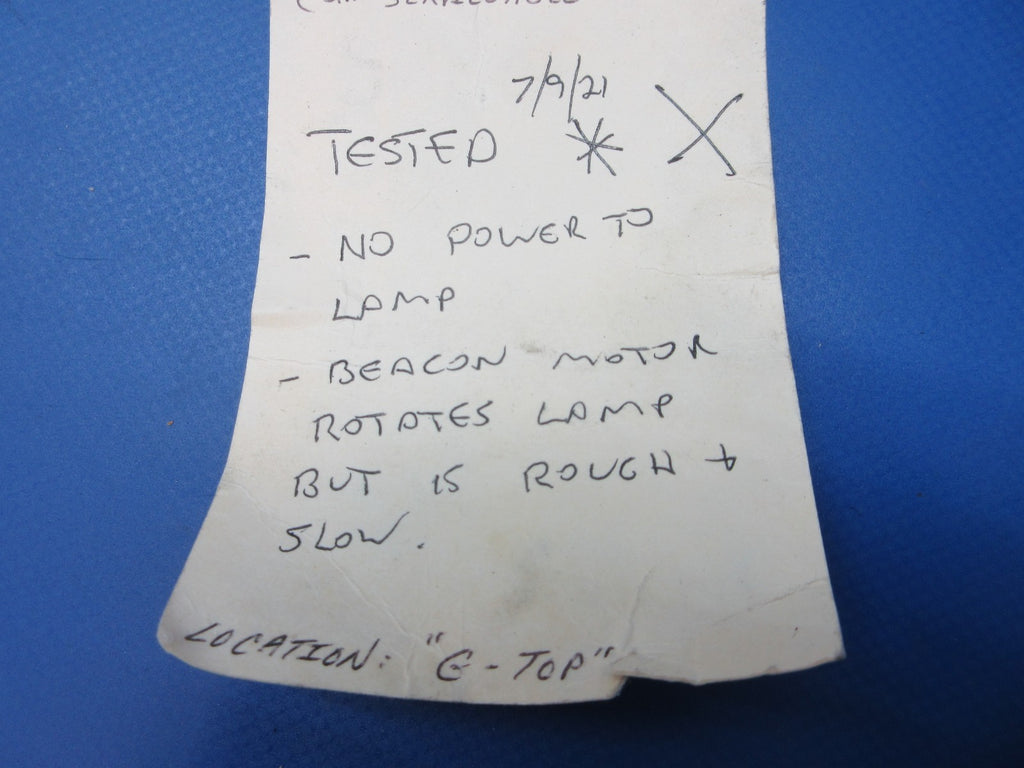 7/9/21
TESTED * X
- NO POWER TO
LAMP
- BEACON MOTOR
ROTATES LAMP
BUT IS ROUGH +
SLOW.
LOCATION: "G-TOP"